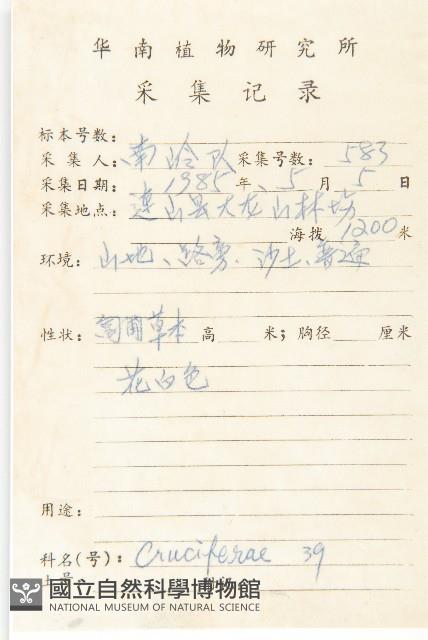 华南植物研究所
采集记录
标本号数：
采集人：南岭队 采集号数：583
采集日期：1985年5月5日
采集地点：连山县大龙山林场
海拨1200米
环境：山地、路旁、沙土、普遍
性状：草本 高 米；胸径 厘米
花白色
用途：
科名(号)：Cruciferae 39
國立自然科學博物館
NATIONAL MUSEUM OF NATURAL SCIENCE